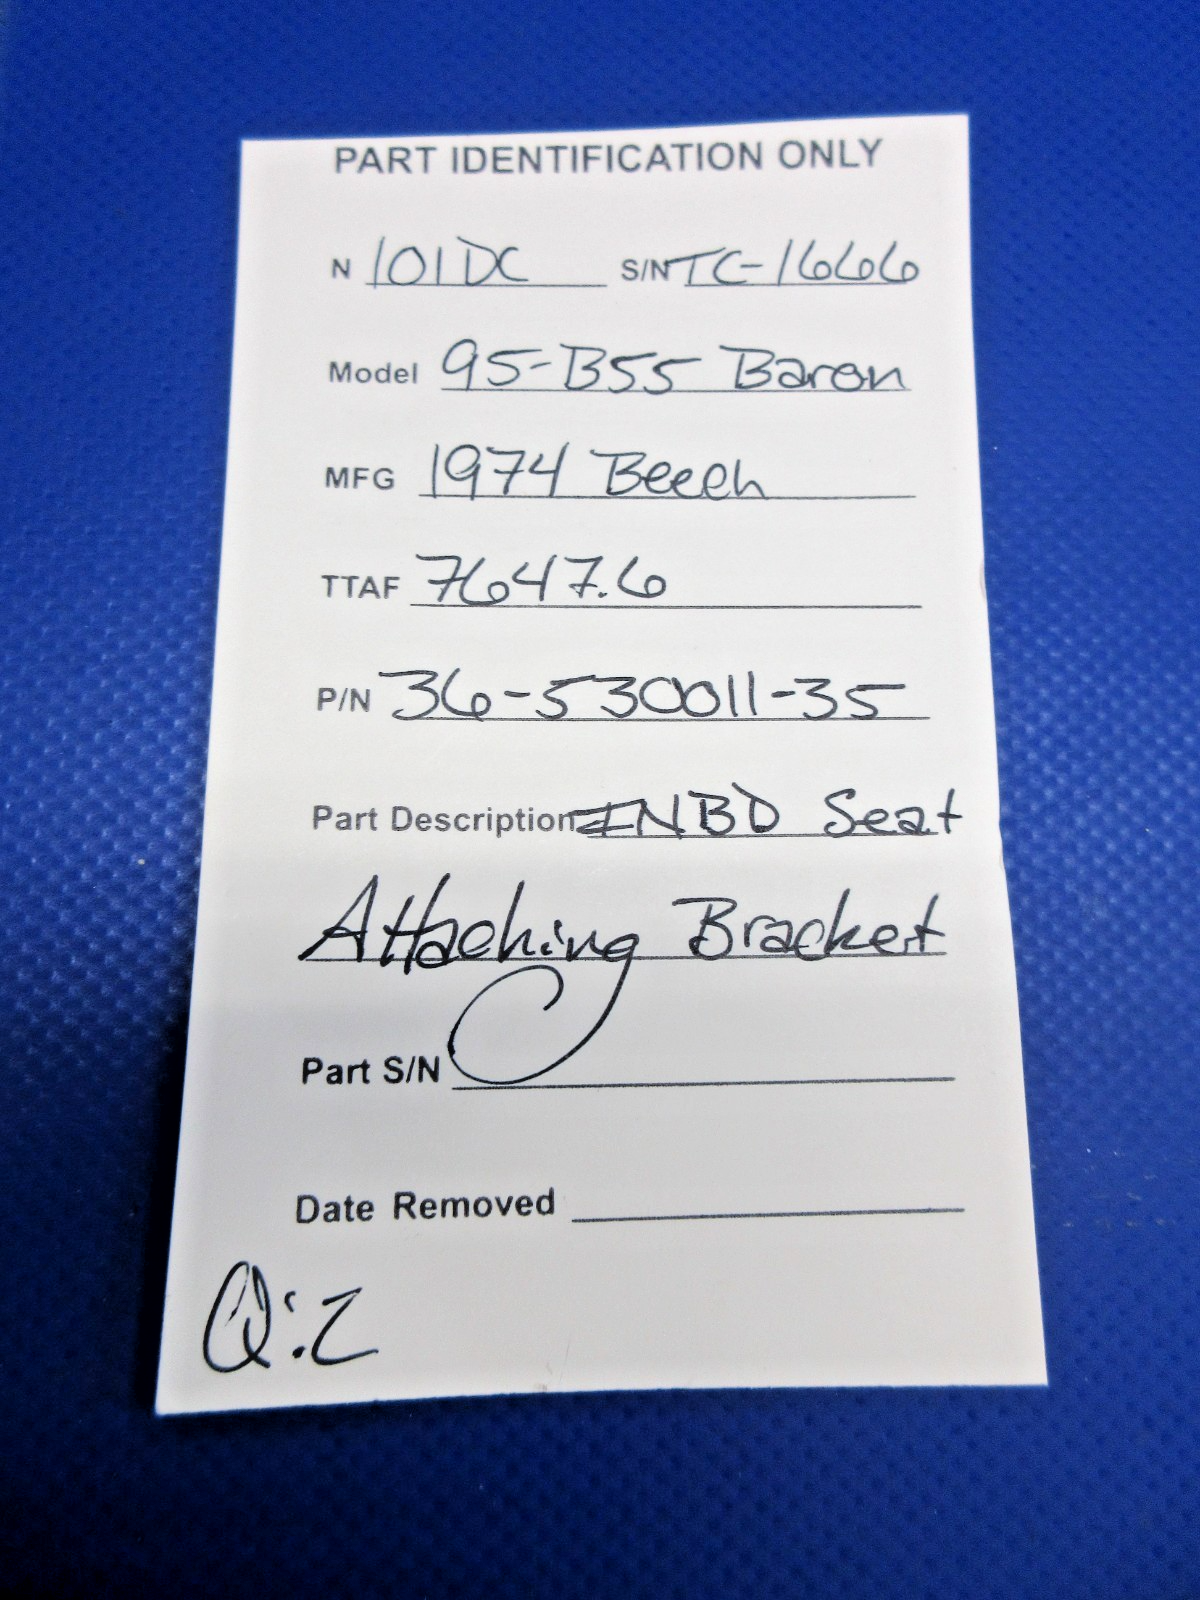 PART IDENTIFICATION ONLY
N 101DC S/N TC-1666
Model 95-B55 Baron
MFG 1974 Beech
TTAF 7647.6
P/N 36-530011-35
Part Description INBD Seat
Attaching Bracket
Part S/N
Date Removed
Q:2